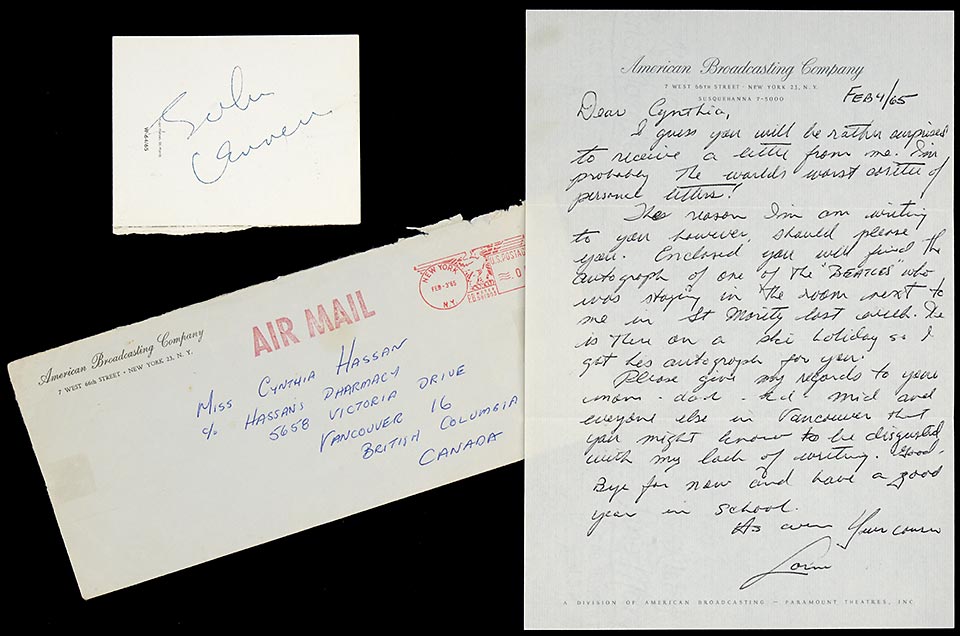 John
Lennon
W 64465
American Broadcasting Company
7 WEST 66th STREET · NEW YORK 23, N. Y.
AIR MAIL
NEW YORK
FEB-
N.Y.
U.S. POSTAGE
MISS CYNTHIA HASSAN
c/o HASSAN'S PHARMACY
5658 VICTORIA DRIVE
VANCOUVER 16
BRITISH COLUMBIA
CANADA
American Broadcasting Company
7 WEST 66th STREET · NEW YORK 23, N. Y.
SUSQUEHANNA 7-5000
FEB 4/65
Dear Cynthia,
I guess you will be rather surprised
to receive a letter from me. I'm
probably the worlds worst writer of
personal letters!
The reason I'm am writing
to you however, should please
you. Enclosed you will find the
autograph of one of the "BEATLES" who
was staying in the room next to
me in St Moritz last week. He
is there on a ski holiday so I
got his autograph for you.
Please give my regards to your
mom - dad - and
everyone else in Vancouver that
you might know to be disgusted
with my lack of writing. Good
Bye for now and have a good
year in school.
As ever Your cousin
Lorne
A DIVISION OF AMERICAN BROADCASTING — PARAMOUNT THEATRES, INC.